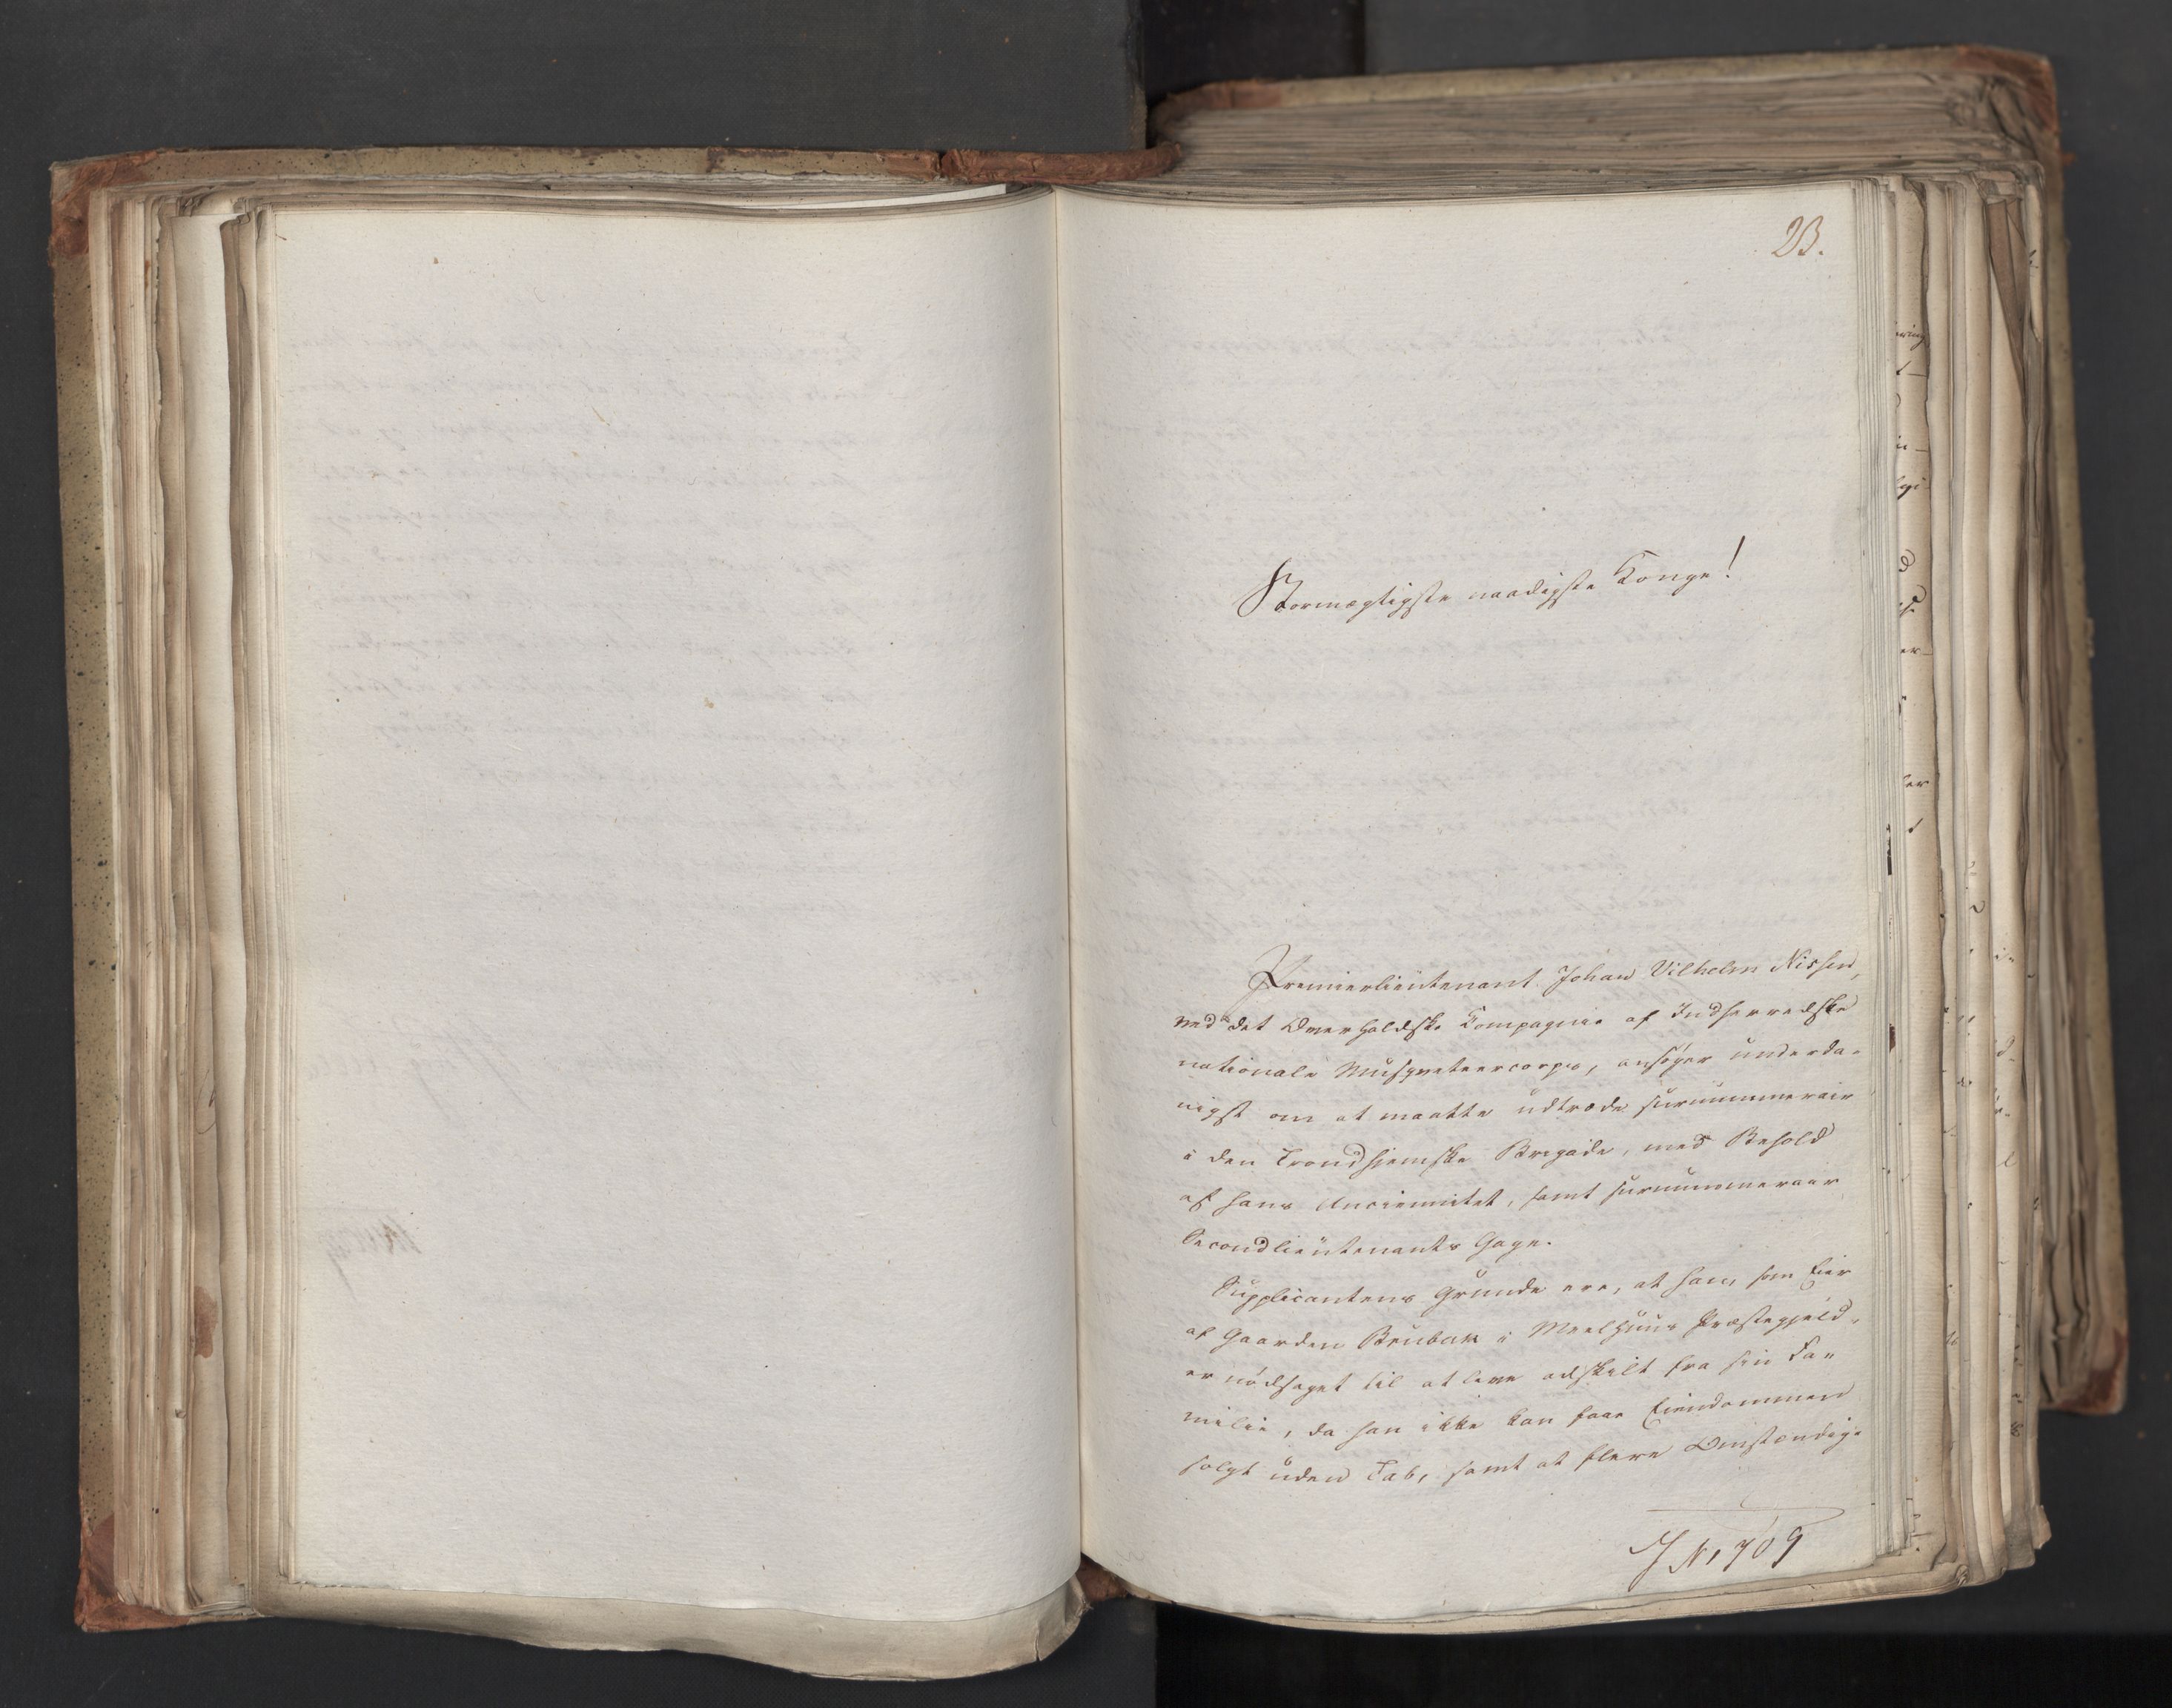 23.
Stormægtigste naadigste Konge!
Premierlieutenant Johan Vilhelm Nissen,
ved det Overhaldske Compagnie af Indherredske
nationale Musqueteercorps, ansøger underda-
nigst om at maatte udtræde surnummerair
i den Trondhjemske Brigade, med Behold
af hans Anciennitet, samt surnummerair
Secondlieutenants Gage.
Supplicantens Grunde ere, at han, som Eier
af Gaarden Brubak i Meelhuus Præstegjeld,
er nødsaget til at leve adskilt fra sin Fa-
milie, da han ikke kan faae Eiendommen
solgt uden Tab, samt at flere Omstændig-
J N. 709